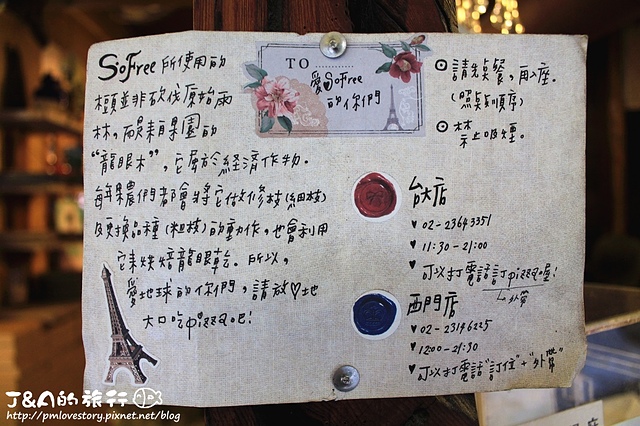 SoFree 所使用的
木頭並非砍伐原始雨
林，而是來自果園的
“龍眼木”，它屬於經濟作物．
每年果農們都會將它做修枝(細枝)
及更換品種(粗枝)的動作，也會利用
它來烘焙龍眼乾．所以，
愛地球的你們，請放♡地
大口吃pizza吧!
TO ............
愛SoFree
的你們
⊙請先點餐，再入座．
(照點餐順序)
⊙禁止吸煙。
台大店
♥ 02-23643351
♥ 11:30-21:00
♥ 可以打電話訂pizza喔!
↳外帶
西門店
♥ 02-23146225
♥ 12:00-21:30
♥ 可以打電話“訂位”+“外帶”
J&A的旅行
http://pmlovestory.pixnet.net/blog